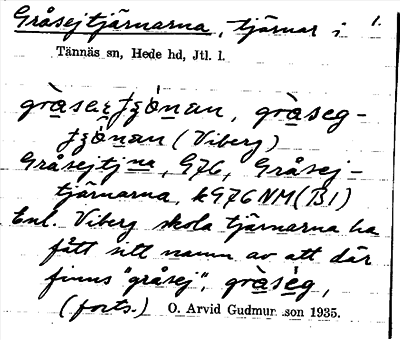 Gråsejtjärnarna, tjärnar i 1.
Tännäs sn, Hede hd, Jtl. l.
gràseg-
(Viberg)
Gråsejtjna, G76, Gråsej-
tjärnarna, k G76 NM (B1)
Enl. Viberg skola tjärnarna ha
fått sitt namn av att där
finns "gråsej", gràsèg,
(forts.) O. Arvid Gudmun son 1935.